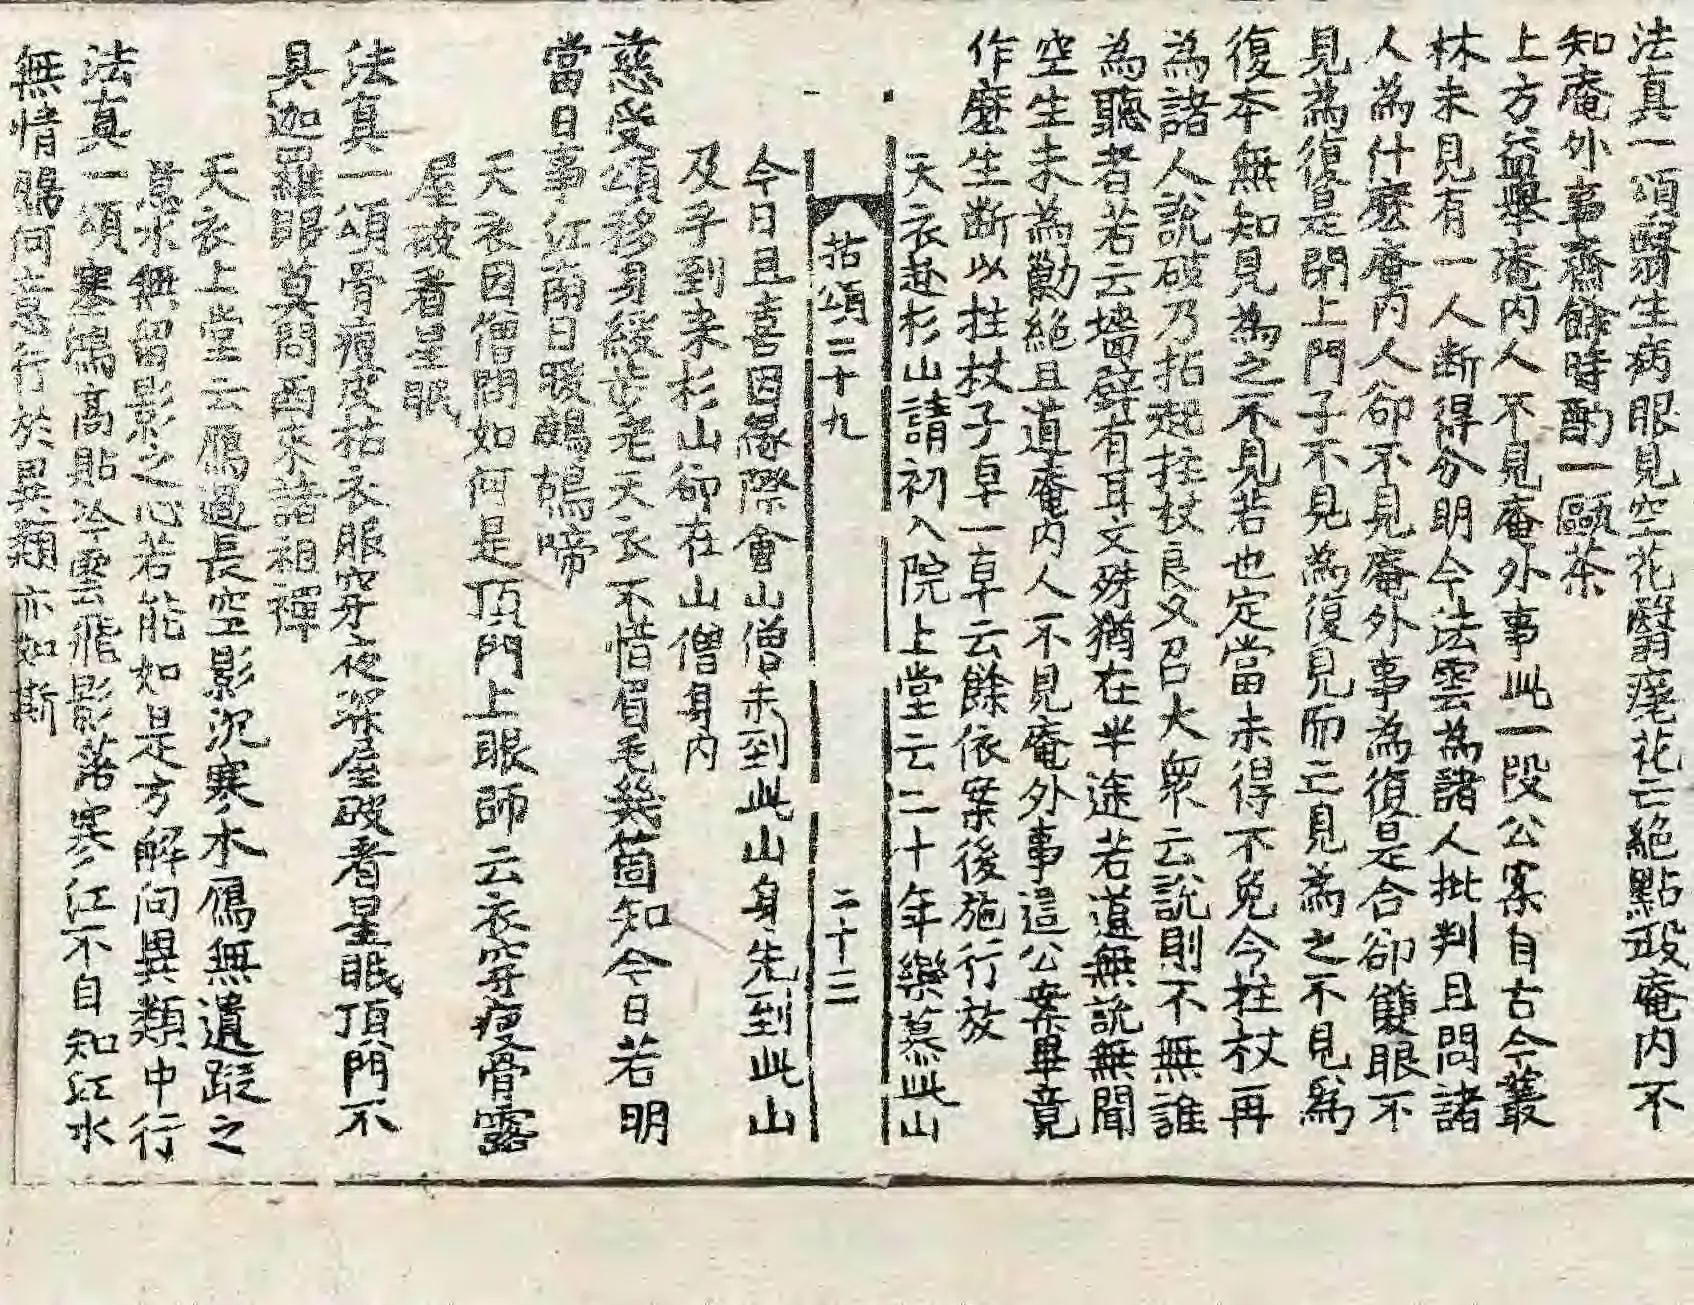 法真一頌翳生病眼見空花翳瘥花亡絕點瑕庵內不
知庵外事齋餘時酌一甌茶
上方益舉庵內人不見庵外事此一段公案自古今叢
林未見有一人斷得分明今法雲為諸人批判且問諸
人為什麼庵內人卻不見庵外事為復是合卻雙眼不
見為復是閉上門子不見為復見而亡見為之不見為
復本無知見為之不見若也定當未得不免今拄杖再
為諸人說破乃拈起拄杖良久召大眾云說則不無誰
為聽者若云墻壁有耳文殊猶在半途若道無說無聞
空生未為勦絕且道庵內人不見庵外事這公案畢竟
作麼生斷以拄杖子卓一卓云餘依案後施行放
天衣赴杉山請初入院上堂云二十年樂慕此山
拈頌二十九 二十三
今日且喜因緣際會山僧未到此山身先到此山
及乎到来杉山卻在山僧身內
慈受頌移身緩步老天衣不惜眉毛幾箇知今日若明
當日事江南日暖鷓鴣啼
天衣因僧問如何是頂門上眼師云衣穿瘦骨露
屋破看星眠
法真一頌骨瘦皮枯衣服穿夜深屋破看星眠頂門不
具迦羅眼莫問西來諸祖禪
天衣上堂云鴈過長空影沉寒水鴈無遺蹤之
意水無留影之心若能如是方解向異類中行
法真一頌塞鴻高貼冷雲飛影落寒江不自知江水
無情鴻何意行於異類亦如斯